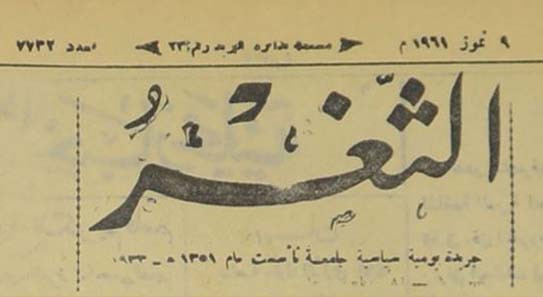 ٩ تموز ١٩٦١ م مسجلة بدائرة البريد رقم ٢٣ عدد ٧٧٣٢
الثَّغْرُ
جريدة يومية سياسية جامعة تأسست عام ١٣٥١ هـ - ١٩٣٣